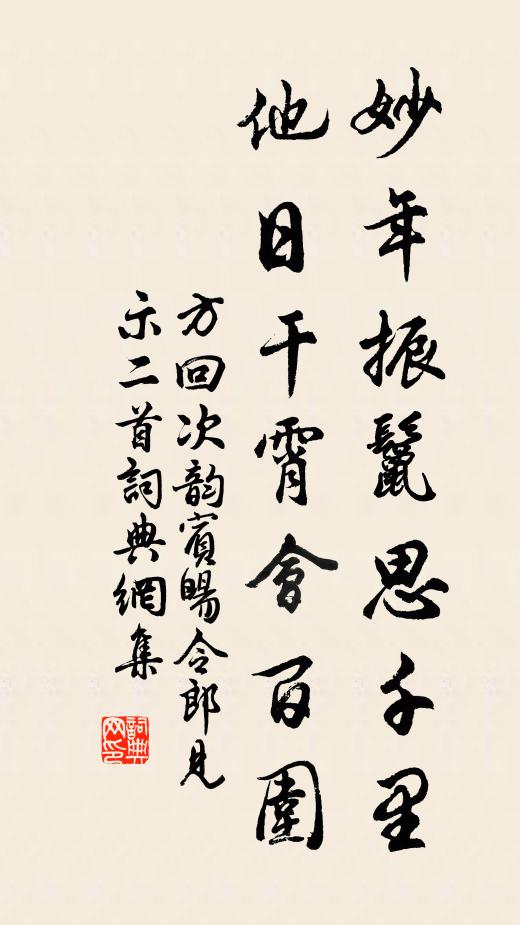 妙年振鬣思千里
他日干霄會百圍
方回次韵賓暘令郎見
示二首詞典網集
詞典
网印